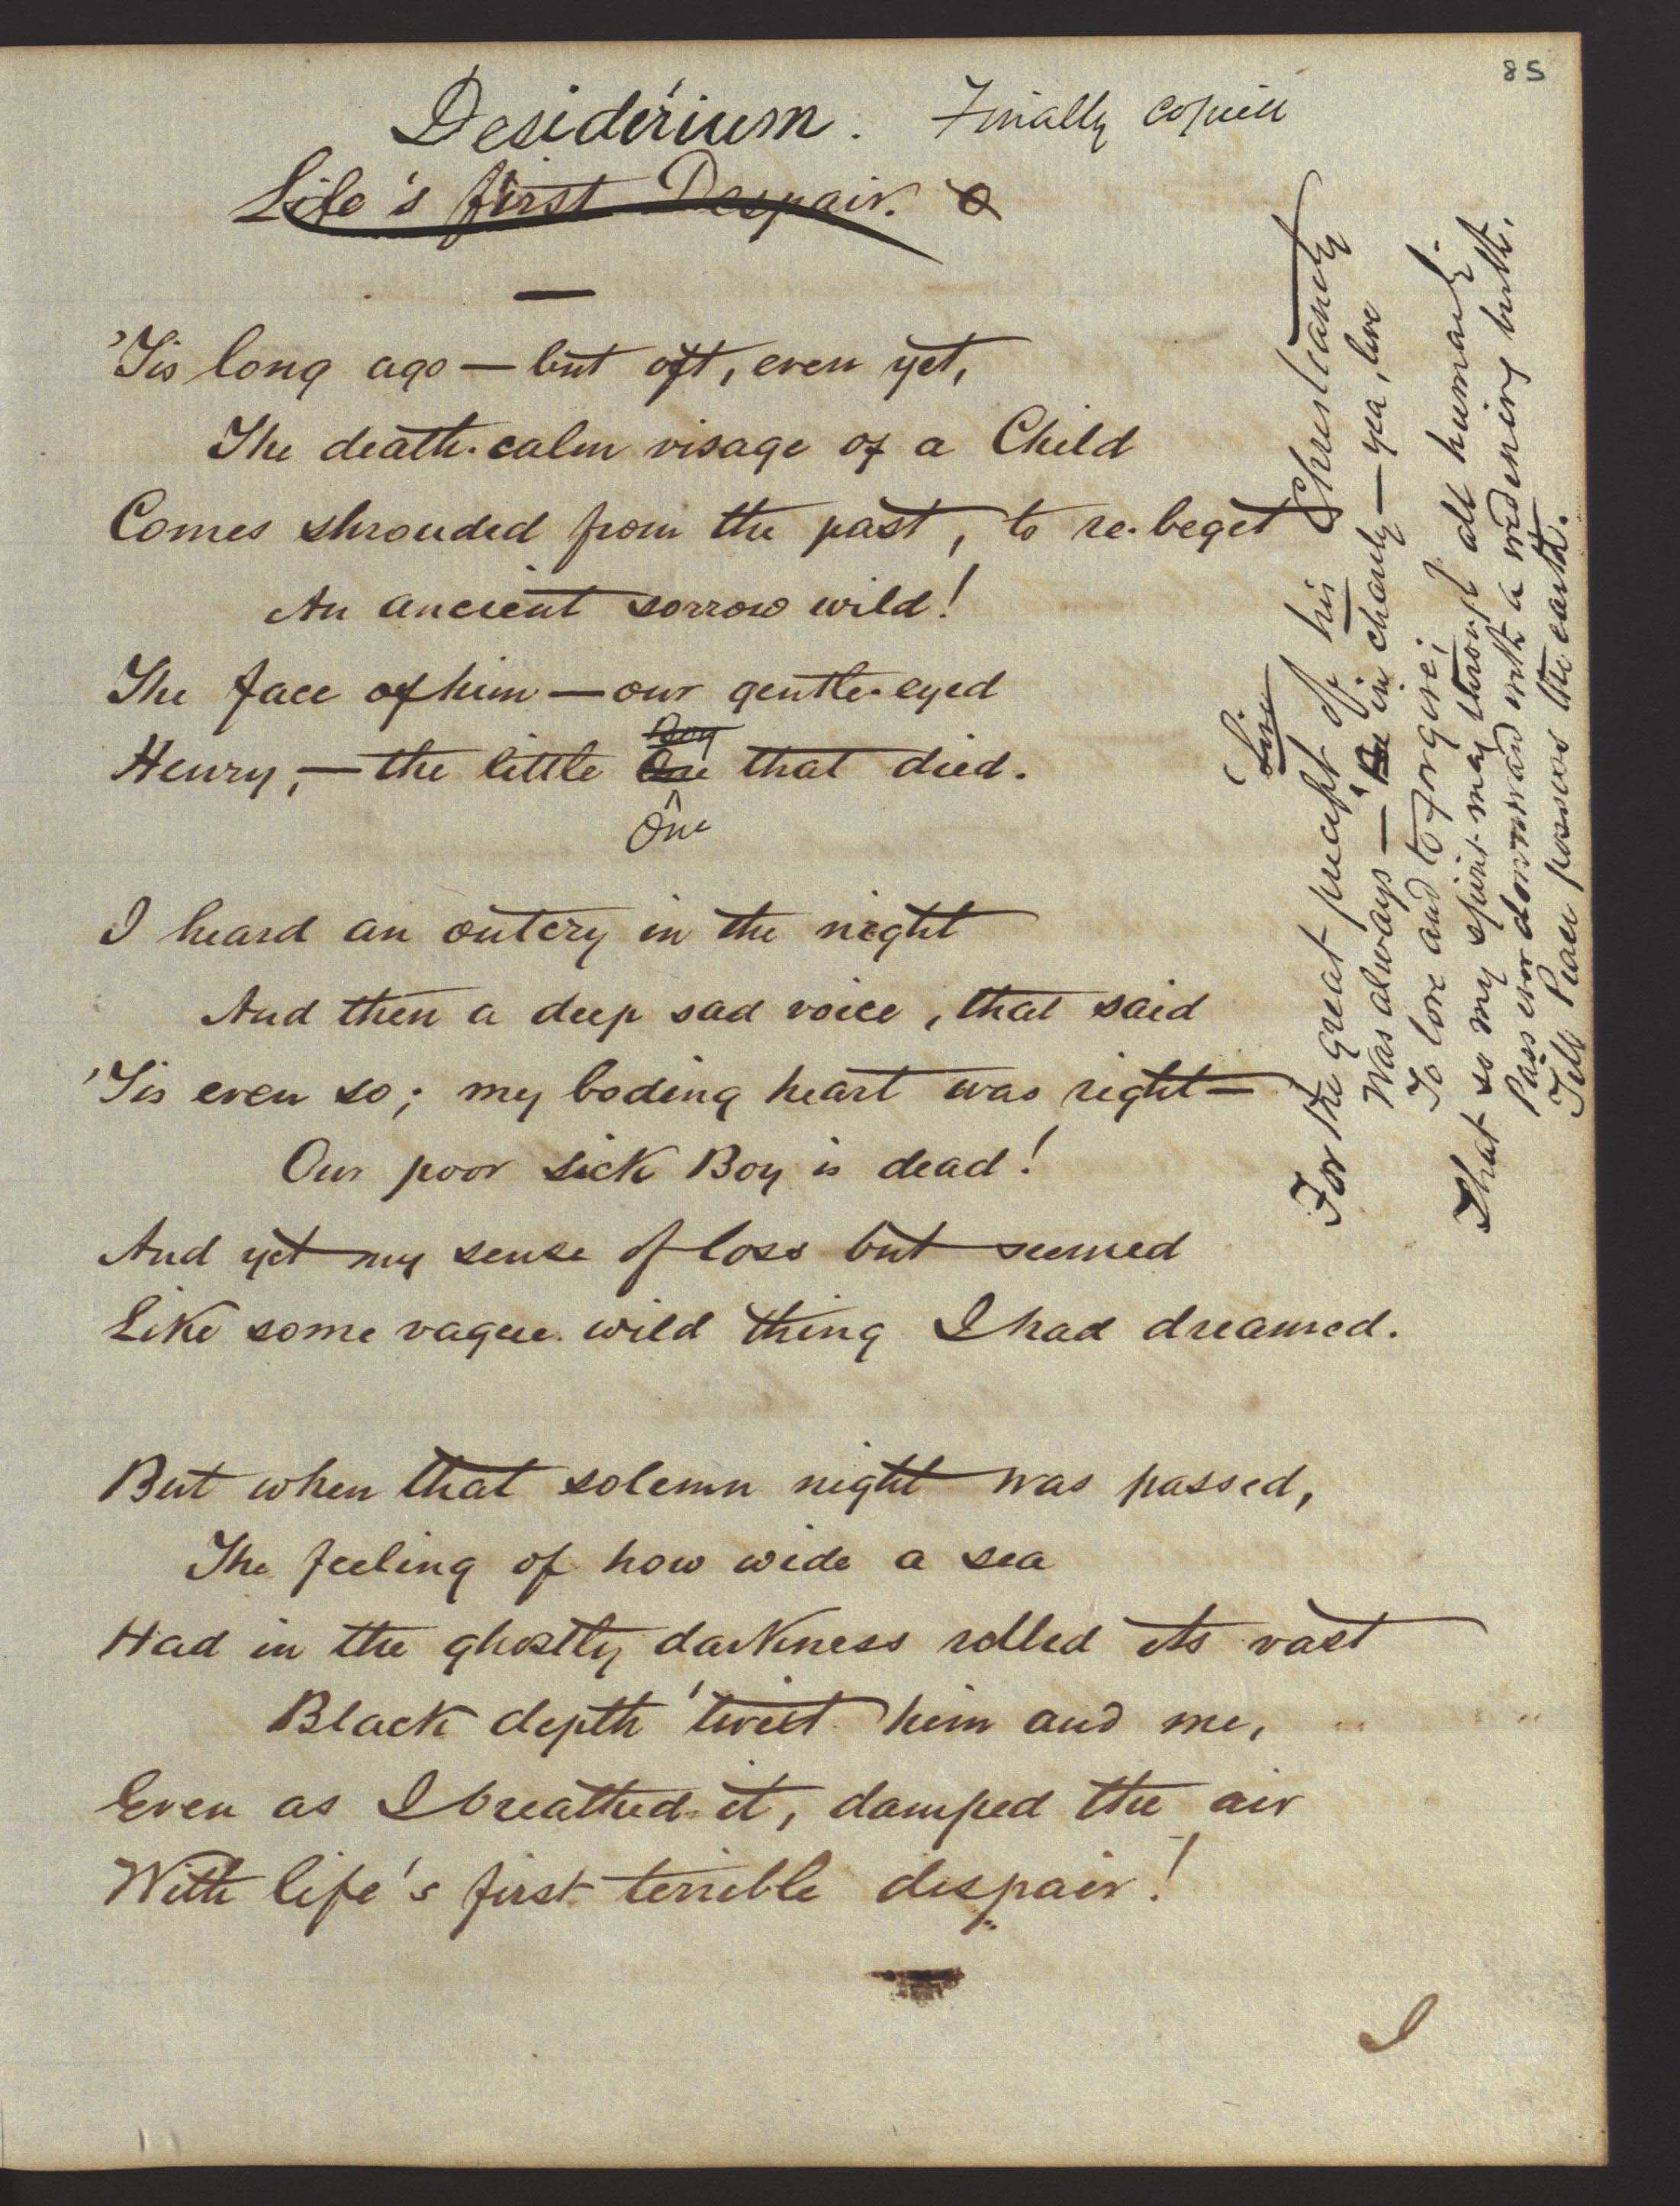 85
Desiderium. Finally copied
Life's first Despair.
'Tis long ago — but oft, even yet,
The death-calm visage of a Child
Comes shrouded from the past, to re-beget
An ancient sorrow wild!
The face of him — our gentle-eyed
Boy
Henry, — the little One that died.
One
I heard an outcry in the night
And then a deep sad voice, that said
'Tis even so; my boding heart was right—
Our poor sick Boy is dead!
And yet my sense of loss but seemed
Like some vague wild thing I had dreamed.
But when that solemn night was passed,
The feeling of how wide a sea
Had in the ghostly darkness rolled its vast
Black depth 'twixt him and me,
Even as I breathed it, damped the air
With life's first terrible despair!
I
Live
For the great precept of his Christianity
Was always — Be in charity — yea, live
To love and to forgive;
That so my spirit may through all humanity
Pass ever downward with a widening birth,
Till Peace possess the earth.